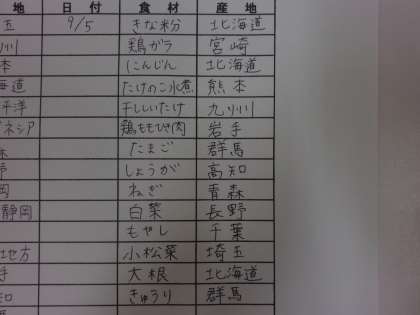 地 日付 食材 産地
五 9/5 きな粉 北海道
州 鶏ガラ 宮崎
本 にんじん 北海道
海道 たけのこ水煮 熊本
平洋 干ししいたけ 九州
ネシア 鶏ももひき肉 岩手
たまご 群馬
野 しょうが 高知
岡 ねぎ 青森
静岡 白菜 長野
もやし 千葉
地方 小松菜 埼玉
手 大根 北海道
知 きゅうり 群馬